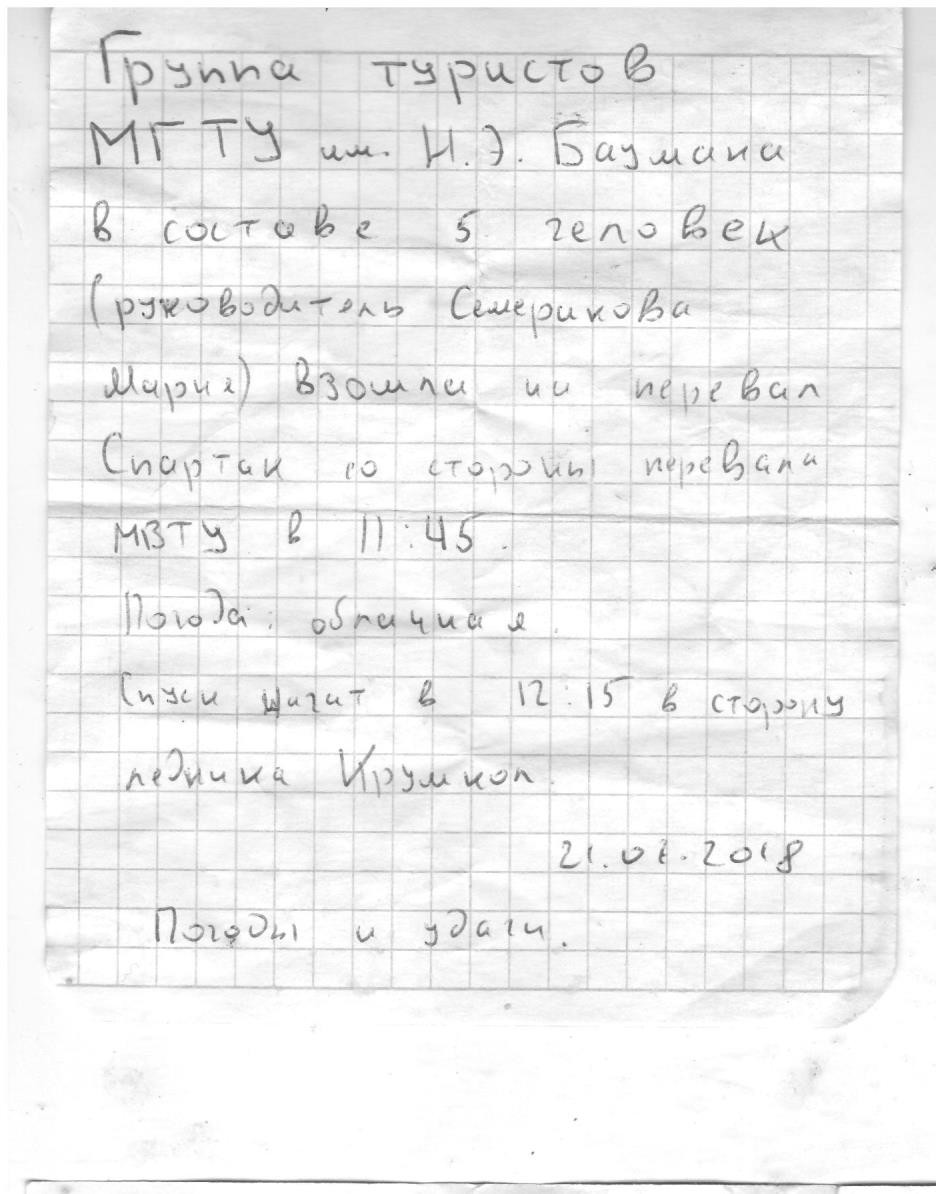 Группа туристов
МГТУ им. Н.Э. Баумана
в составе 5 человек
(руководитель Семерикова
Мария) взошла на перевал
Спартак со стороны перевала
МВТУ в 11:45.
Погода: облачная.
Спуск начат в 12:15 в сторону
ледника Крумкол.
21.07.2018
Погоды и удачи.